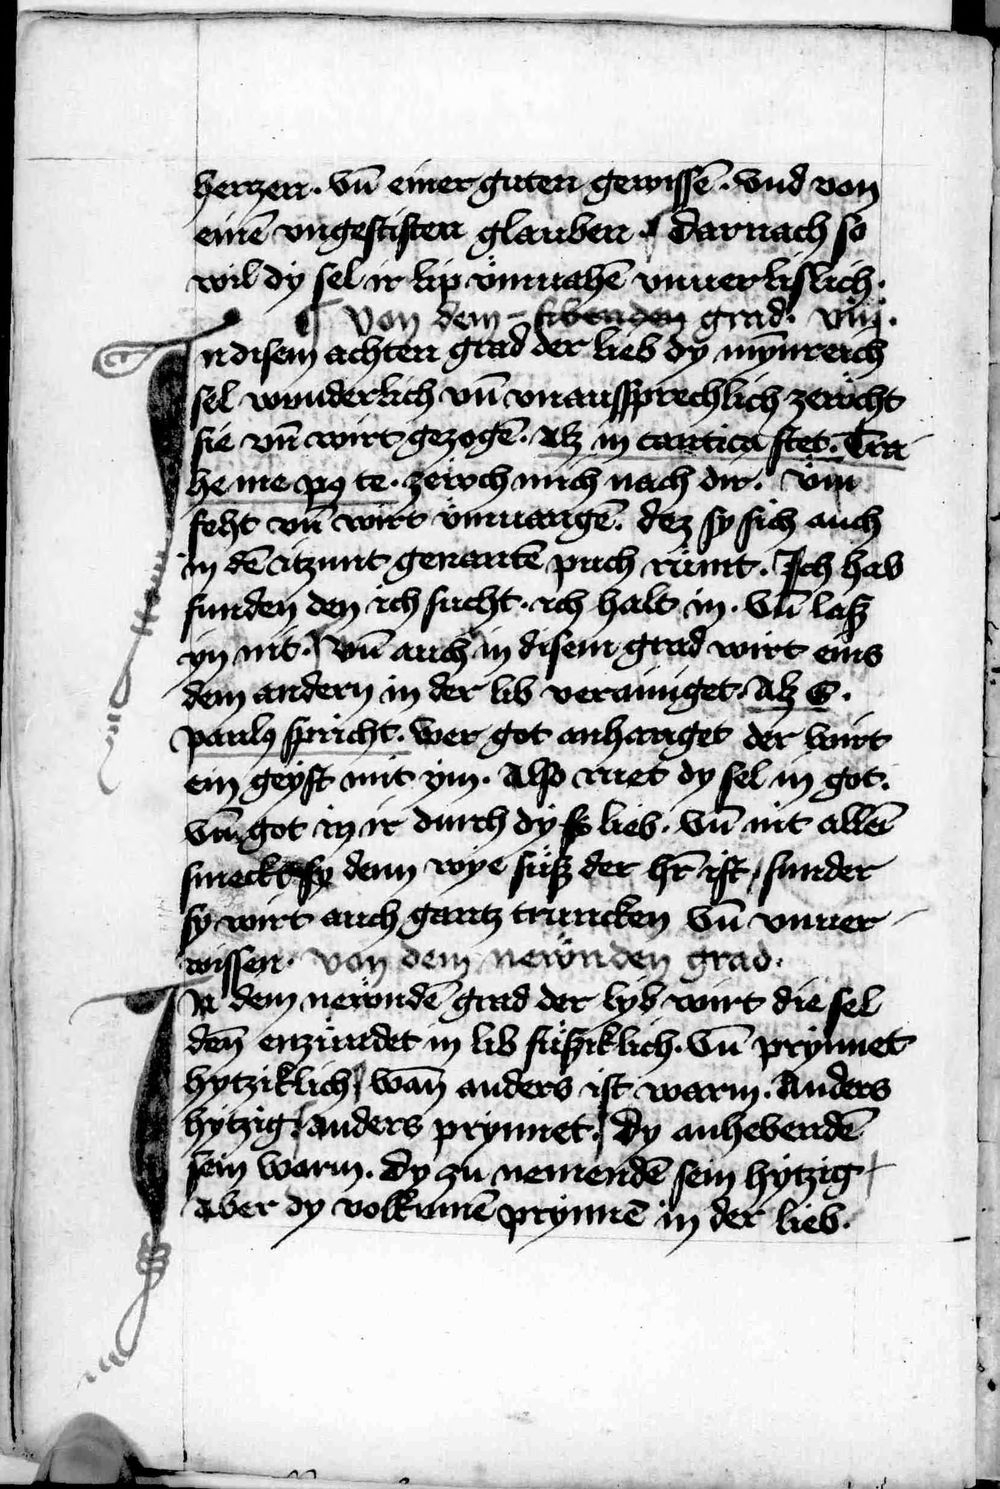 hertzen. vn̄ einer guten gewissē. vnd von
einē vngestiften glauben. darnach so
wil dy sel ir lip vmuahē vnuerlislich.
¶ Von dem sibenden grad. viij.
In disem achten grad der lieb dy mynreich
sel wunderlich vn̄ vnaussprechlich zewcht
sie vn̄ wirt gezogē. Alz in cantica stet. Tra
he me pꝯ te. zewch mich nach dir. vm
feht vn̄ wirt vmuangē. dez sy sich auch
in dē itzunt genantē puch rümt. Ich hab
funden den ich sucht. ich halt in. Vn̄ laß
yn nit. Vn̄ auch in disem grad wirt eins
dem andern in der lib verainiget. Alz S.
paulꝯ spricht. Wer got anhanget der wirt
ein geyst mit ym. Also ruet dy sel in got.
Vn̄ got in ir durch dy so lieb. Vn̄ nit allei̅
smeckt sy denn wye süß der hr̄ ist, sunder
sy wirt auch gantz truncken vn̄ vnuer
wissen. Von dem newnden grad.
In dem newndē grad der lyb wirt die sel
den̄ enzündet in lib füssiklich. Vn̄ prynnet
hytziklich, wan̄ anders ist warm. Anders
hytzig. anders prynnet. Dy anhebendē
sein warm. dy zu nemendē sein hytzig
Aber dy volkumē prynnē in der lieb.